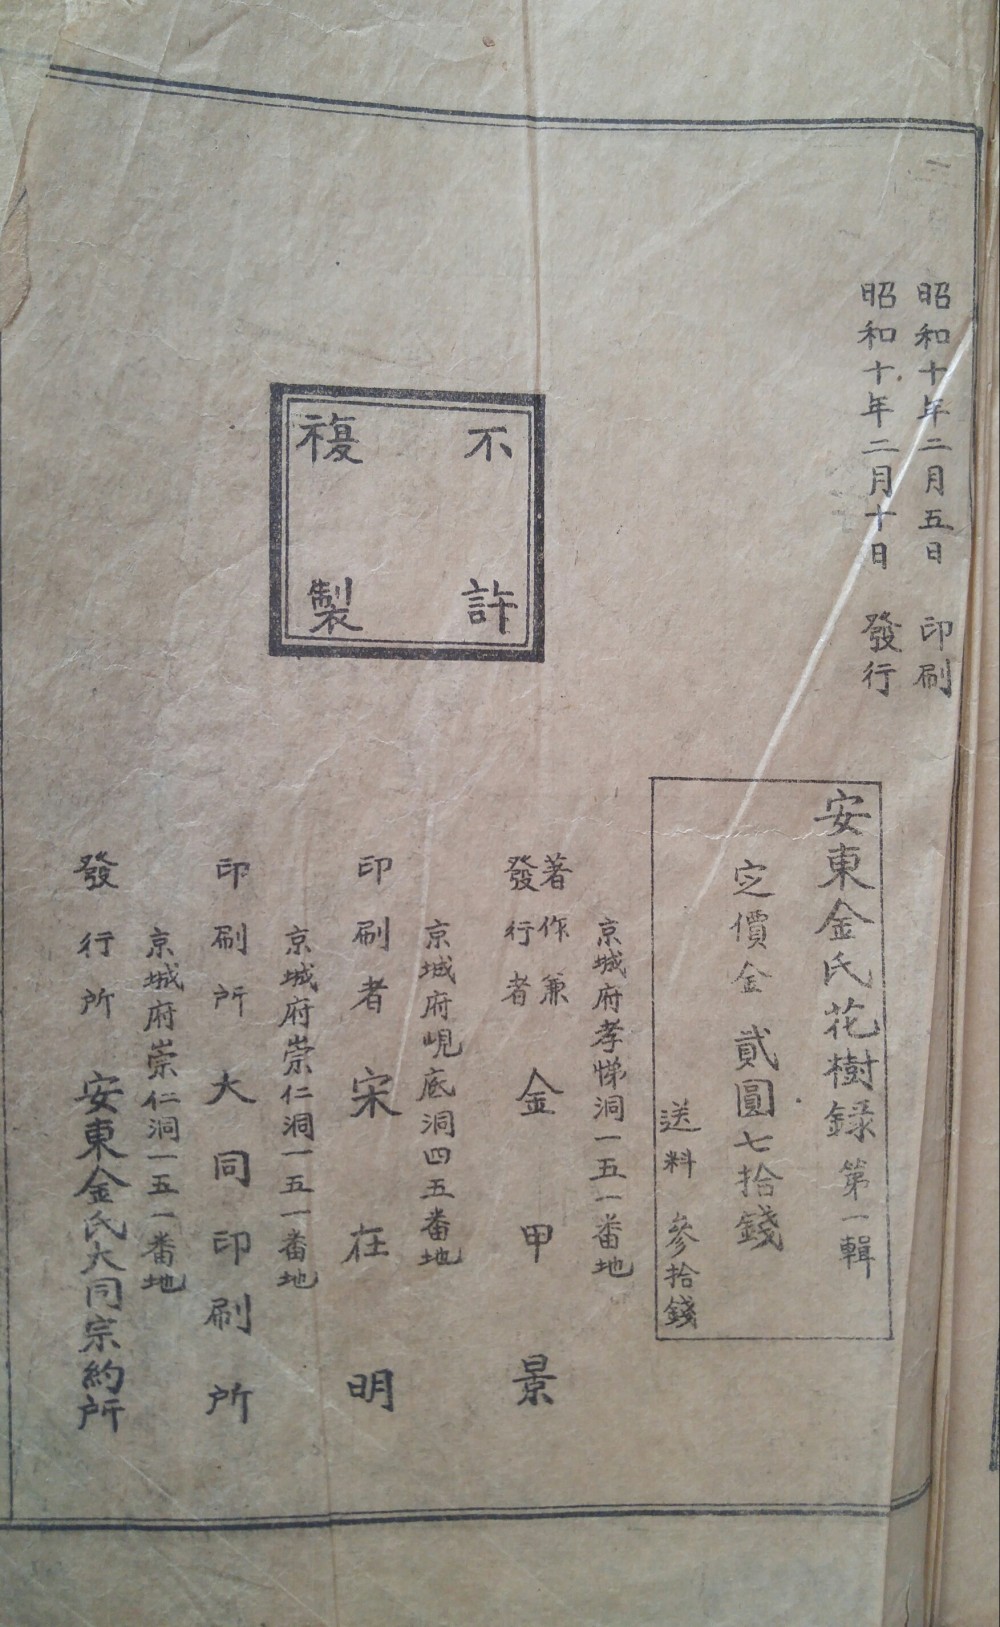 昭和十年二月五日 印刷
昭和十年二月十日 發行
不許
複製
安東金氏花樹録 第一輯
定價金 貳圓七拾錢
送料 參拾錢
京城府孝悌洞一五一番地
著作兼
發行者 金甲景
京城府峴底洞四五番地
印刷者 宋在明
京城府崇仁洞一五一番地
印刷所 大同印刷所
京城府崇仁洞一五一番地
發行所 安東金氏大同宗約所